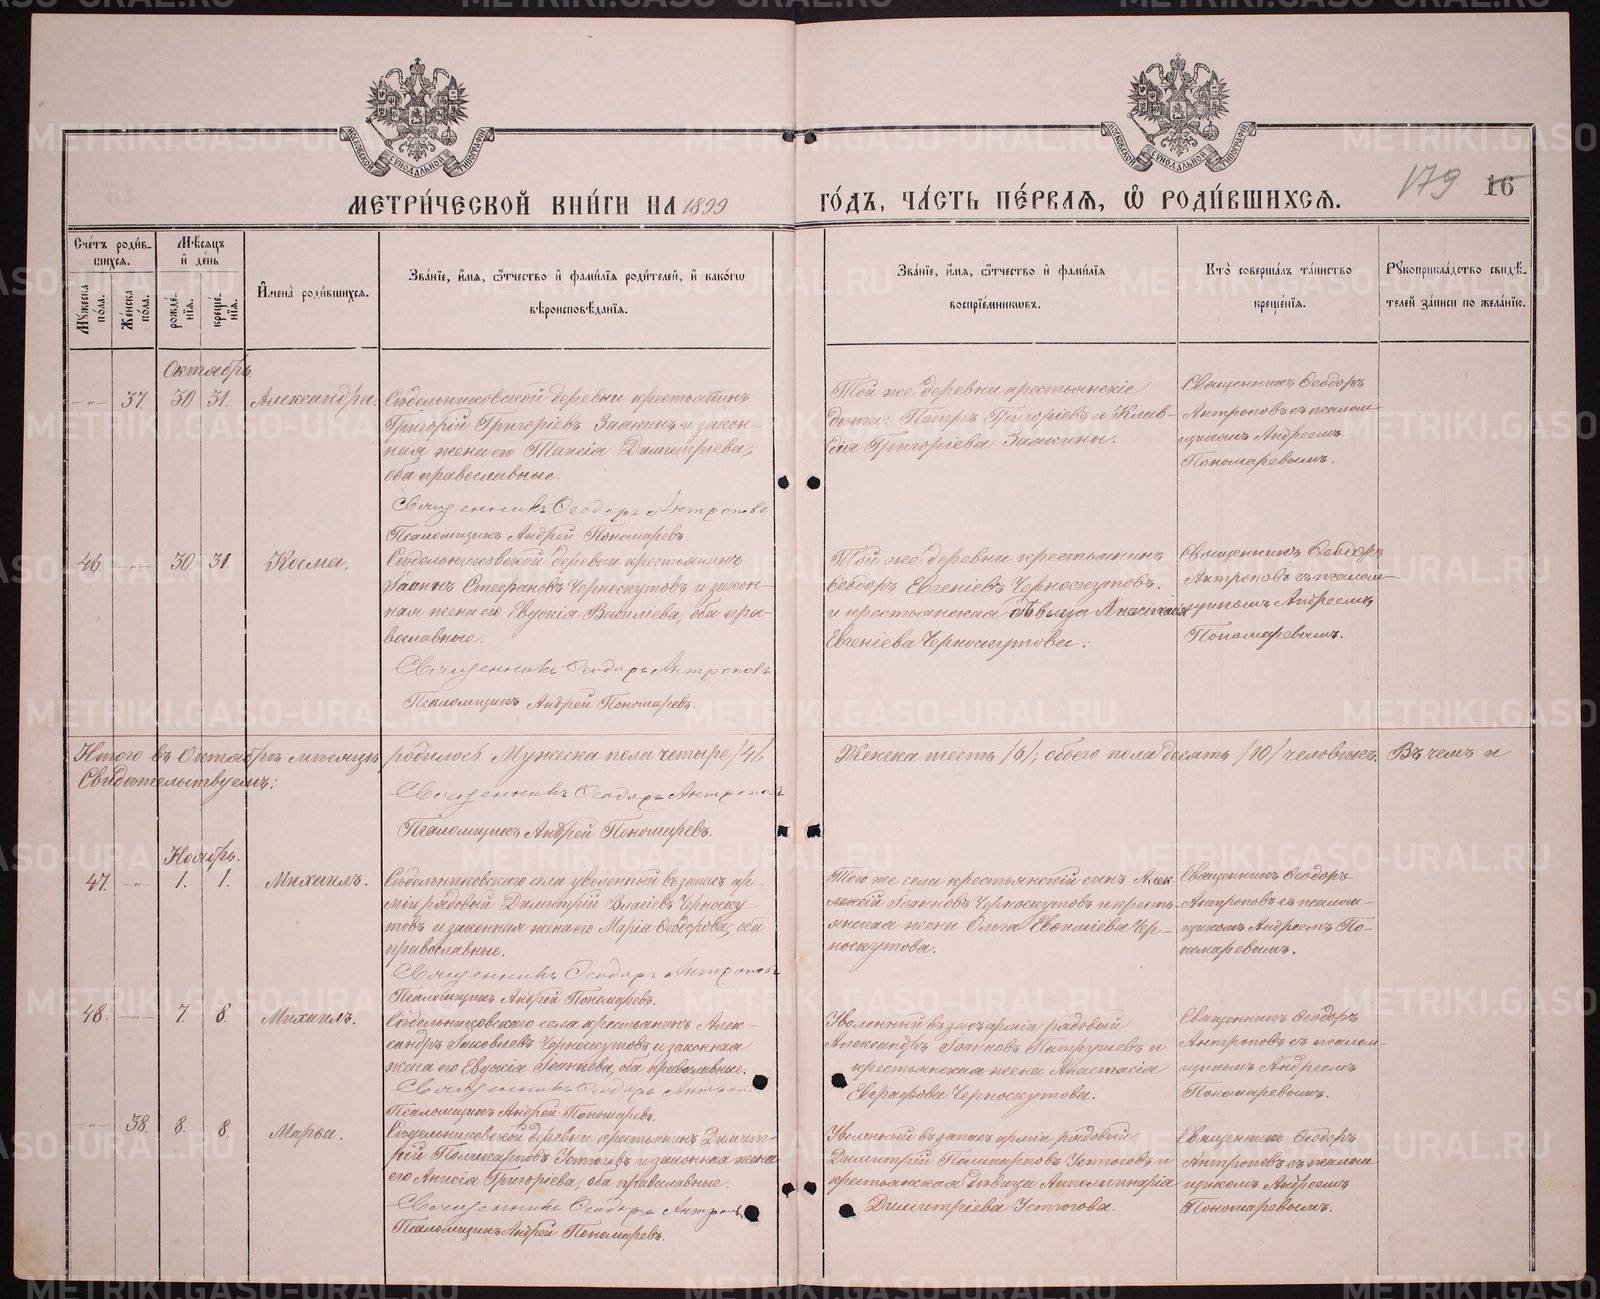 МОСКОВСКОЙ СУНОДАЛЬНОЙ ТИПОГРАФІИ
МОСКОВСКОЙ СУНОДАЛЬНОЙ ТИПОГРАФІИ
МЕТРИ́ЧЕСКОЙ КНИ́ГИ НА 1899 ГО́ДЪ, ЧА́СТЬ ПЕ́РВАЯ, Ѡ РОДИ́ВШИХСЯ.
179 16
Сче́тъ роди́вшихся.
Му́жеска по́ла.
Же́нска по́ла.
Мѣ́сяцъ и де́нь
рожде́нія.
креще́нія.
И҆мена̀ роди́вшихся.
Зва́ніе, и҆́мя, ѻ҆́тчество и҆ фами́лія роди́телей, и҆ како́гѡ
вѣроисповѣ́данія.
Зва́ніе, и҆́мя, ѻ҆́тчество и҆ фами́лія
воспріе́мникѡвъ.
Кто̀ соверша́лъ та́инство
креще́нія.
Рꙋкоприкла́дство свидѣ́-
телей за́писи по жела́нію.
Октябрь.
-„- 37 30 31. Александра.
Сѣдельниковской деревни крестьянинъ
Григорій Григоріевъ Заякинъ и закон-
ная жена его Таисія Димитріева,
оба православные.
Священникъ Ѳеодоръ Антроповъ
Псаломщикъ Андрей Пономаревъ
Той же деревни крестьянскіе
дѣти: Петръ Григоріевъ и Клав-
дія Григоріева Заякины.
Священникъ Ѳеодоръ
Антроповъ съ псалом-
щикомъ Андреемъ
Пономаревымъ.
46. -„- 30 31. Косма.
Сѣдельниковской деревни крестьянинъ
Іоаннъ Стефановъ Черноскутовъ и закон-
ная жена его Евдокія Василіева, оба пра-
вославные.
Священникъ Ѳеодоръ Антроповъ
Псаломщикъ Андрей Пономаревъ.
Той же деревни крестьянинъ
Ѳеодоръ Евгеніевъ Черноскутовъ.
и крестьянская дѣвица Анастасія
Евгеніева Черноскутова.
Священникъ Ѳеодоръ
Антроповъ съ псалом-
щикомъ Андреемъ
Пономаревымъ.
Итого въ Октябрѣ мѣсяцѣ родилось Мужеска пола четыре /4/ Женска шесть /6/; обоего пола десять /10/ человѣкъ. Въ чемъ и
Свидѣтельствуемъ:
Священникъ Ѳеодоръ Антроповъ
Псаломщикъ Андрей Пономаревъ.
Ноябрь.
47. -„- 1. 1. Михаилъ.
Сѣдельниковскаго села уволенный въ запасъ ар-
міи рядовой Димитрій Власіевъ Черноску-
товъ и законная жена его Марія Ѳеодорова, оба
православные.
Священникъ Ѳеодоръ Антроповъ
Псаломщикъ Андрей Пономаревъ.
Того же села крестьянскій сынъ Алек-
сѣй Іоанновъ Черноскутовъ и кресть-
янская жена Ольга Чер-
носкутова.
Священникъ Ѳеодоръ
Антроповъ съ псалом-
щикомъ Андреемъ По-
номаревымъ.
48. -„- 7. 8. Михаилъ.
Сѣдельниковскаго села крестьянинъ Алек-
сандръ Іаковлевъ Черноскутовъ и законная
жена его Евдокія Іоаннова, оба православные.
Священникъ Ѳеодоръ Антропов
Псаломщикъ Андрей Пономаревъ.
Уволенный въ зап. арміи рядовый
Александръ Іоанновъ Патрушевъ и
крестьянская жена Анастасія
Евграфова Черноскутова.
Священникъ Ѳеодоръ
Антроповъ съ псалом-
щикомъ Андреемъ
Пономаревымъ.
-„- 38. 8. 8. Марья.
Сѣдельниковской деревни крестьянинъ Димит-
рій Поликарповъ Устюговъ и законная жена
его Анисія Григоріева, оба православные.
Священникъ Ѳеодоръ Антроп
Псаломщикъ Андрей Пономаревъ.
Уволенный въ запасъ арміи рядовой
Димитрій Поликарповъ Устюговъ и
крестьянская дѣвица Апполинарія
Димитріева Устюгова.
Священникъ Ѳеодоръ
Антроповъ съ псалом-
щикомъ Андреемъ
Пономаревымъ.
METRIKI.GASO-URAL.RU